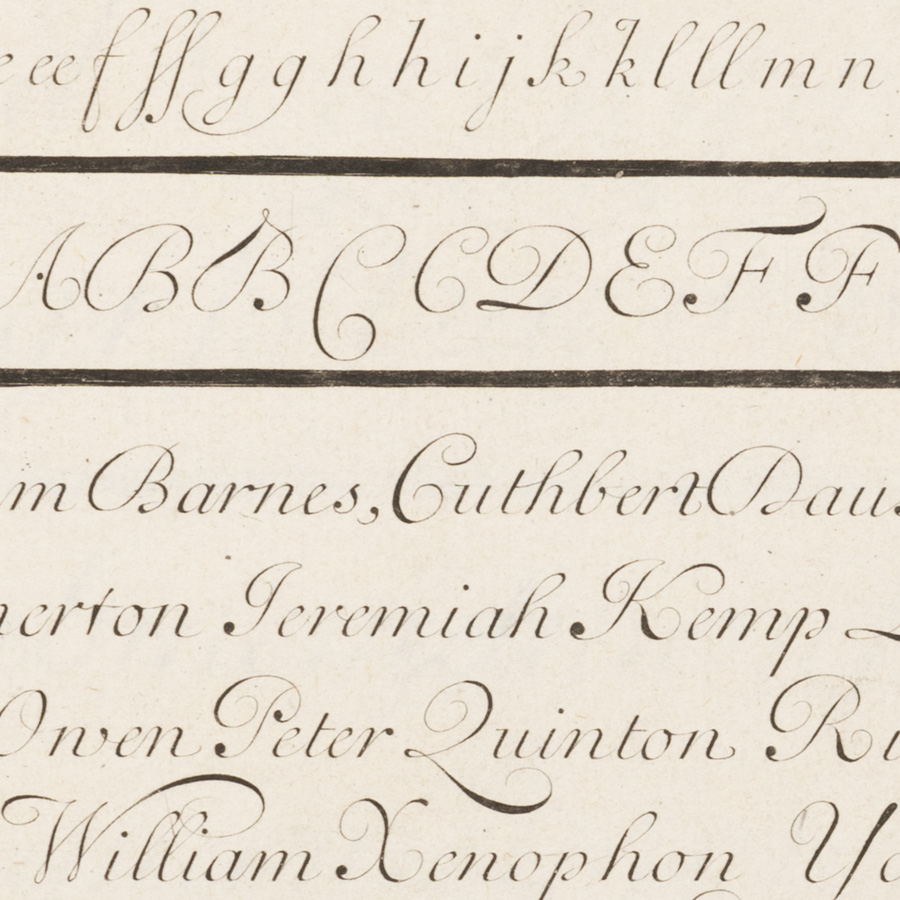 e e e f ff g g h h i j k k l l l m n
A B B C C D E F F
m Barnes, Cuthbert Dav
erton Jeremiah Kemp
Owen Peter Quinton R
William Xenophon Y